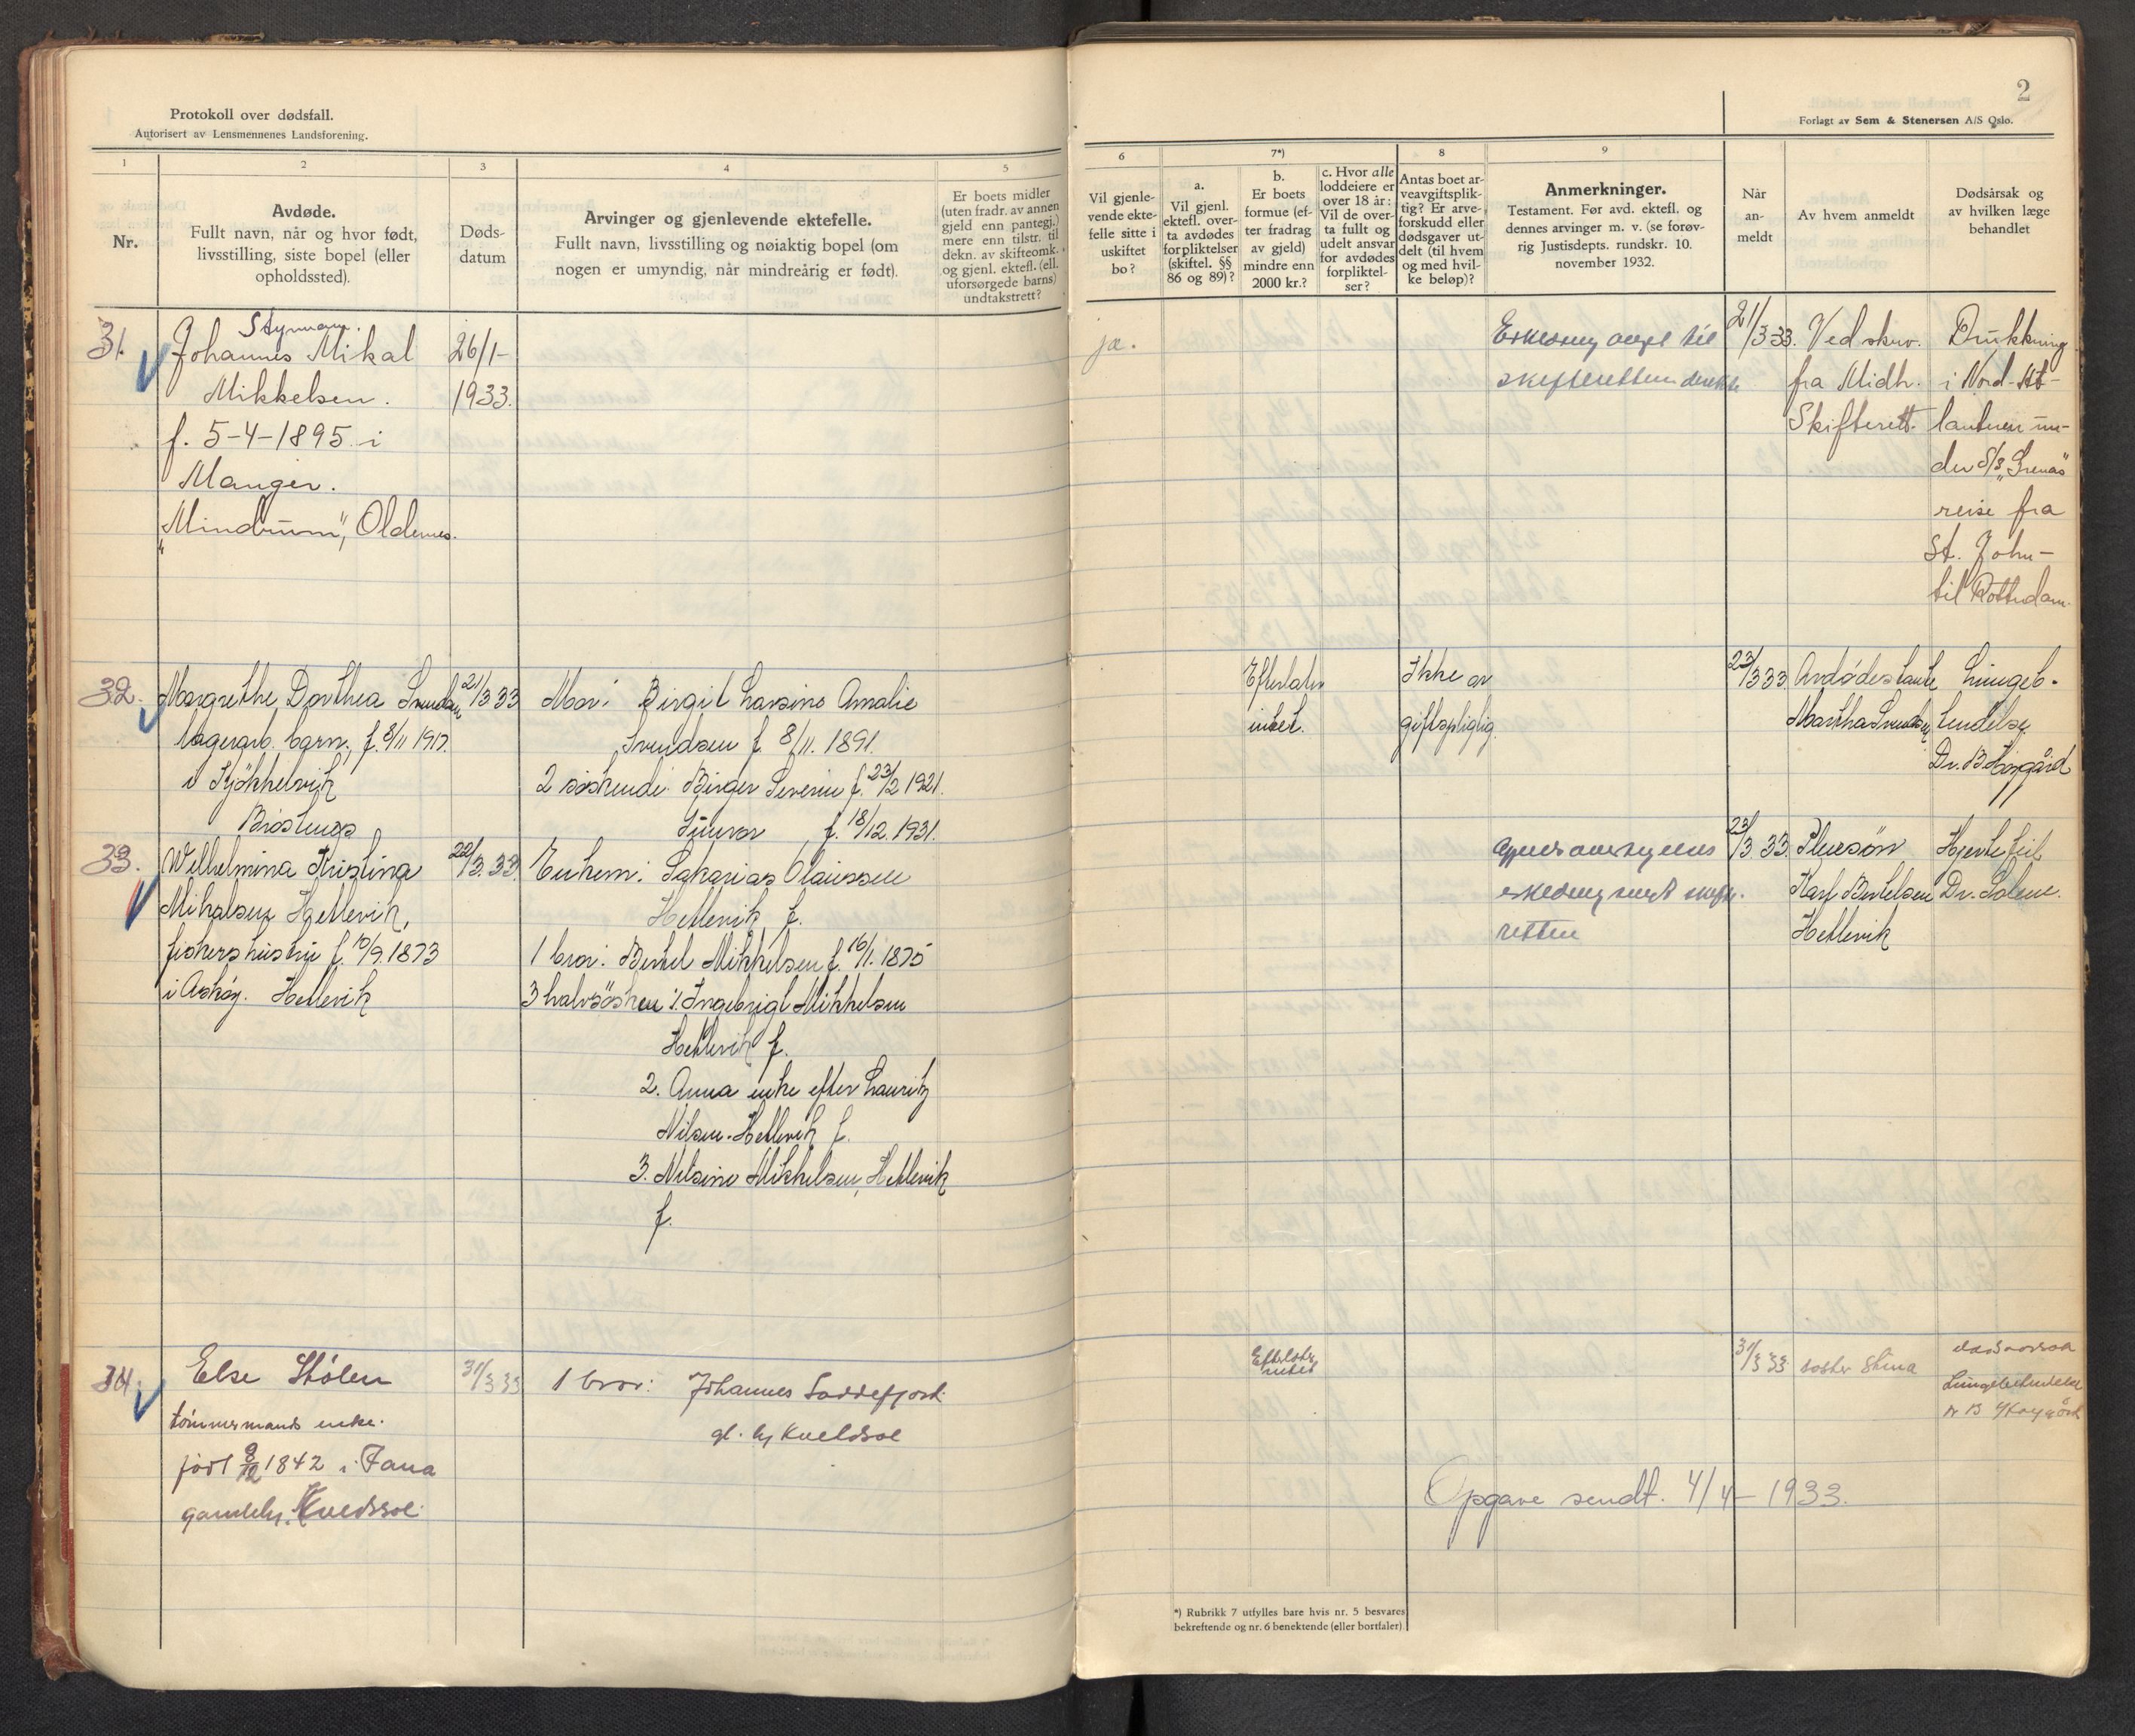 Protokoll over dødsfall.
Autorisert av Lensmennenes Landsforening.
1
2
3
4
5
Nr.
Avdøde.
Fullt navn, når og hvor født,
livsstilling, siste bopel (eller
opholdssted).
Døds-
datum
Arvinger og gjenlevende ektefelle.
Fullt navn, livsstilling og nøiaktig bopel (om
nogen er umyndig, når mindreårig er født).
Er boets midler
(uten fradr. av annen
gjeld enn pantegj.)
mere enn tilstr. til
dekn. av skifteomk.
og gjenl. ektefl. (ell.
uforsørgede barns)
undtakstrett?
31.
Styrmann.
Johannes Mikal
Mikkelsen.
f. 5-4-1895 i
Manger.
"Mindrum", Oldernes.
26/1-
1933.
32.
Margrethe Dorthea Svendsen
lagerarb. barn, f. 8/11 1917.
i Kjøkkelvik
21/3 33
Mor: Birgit Larsine Amalie
Svendsen f. 8/11. 1891.
2 søskende: Birger Severin f. 23/2 1921.
Gunvor f. 18/12. 1931.
33.
Wilhelmina Kristina
Mikalsen Hetlevik,
fiskers hustru f. 10/9. 1873
i Askøy. Hetlevik
22/3. 33.
Enkem: Sakarias Olaussen
Hetlevik f.
1 bror: Bertel Mikkelsen f. 16/1. 1875
3 halvsøsken: 1. Ingebrigt Mikkelsen
Hetlevik f.
2. Anna enke efter Lauritz
Nilsen. Hetlevik f.
3. Nilsine Mikkelsen, Hetlevik
f.
34.
Else Stølen
tømmermands enke.
født 9/12 1842 i Fana
gamleh. Kveldsol
31/3 33
1 bror: Johannes Loddefjord
gl. hj Kveldsol
2
Forlagt av Sem & Stenersen A/S Oslo.
6
7*)
8
9
Vil gjenle-
vende ekte-
felle sitte i
uskiftet
bo?
a.
Vil gjenl.
ektefl. over-
ta avdødes
forpliktelser
(skiftel. §§
86 og 89)?
b.
Er boets
formue (ef-
ter fradrag
av gjeld)
mindre enn
2000 kr.?
c. Hvor alle
loddeiere er
over 18 år:
Vil de over-
ta fullt og
udelt ansvar
for avdødes
forpliktel-
ser?
Antas boet ar-
veavgiftsplik-
tig? Er arve-
forskudd eller
dødsgaver ut-
delt (til hvem
og med hvil-
ke beløp)?
Anmerkninger.
Testament. Før avd. ektefl. og
dennes arvinger m. v. (se forøv-
rig Justisdepts. rundskr. 10.
november 1932.
Når
an-
meldt
Av hvem anmeldt
Dødsårsak og
av hvilken læge
behandlet
ja.
til
skifteretten direkte
21/3-33.
Ved skriv.
fra Midh.
Skifterett.
Drukkning
i Nord-At-
lanteren un-
der S/S "Grenas"
reise fra
St. John-
til Rotterdam.
Efterlater
intet.
Ikke av
giftspligtig.
23/3 33
Avdødes tante
Martha Svendsen
Lungeb-
tendelse
Dr.
23/3 33.
skifte-
retten
Pleiesøn
Karl Bertelsen
Hetlevik
Hjertefeil
Dr.
Efterlater
intet
31/3 33
søster Stina
Lungebetendelse
Opgave sendt. 4/4-1933.
*) Rubrikk 7 utfylles bare hvis nr. 5 besvares
bekreftende og nr. 6 benektende (eller bortfaler)